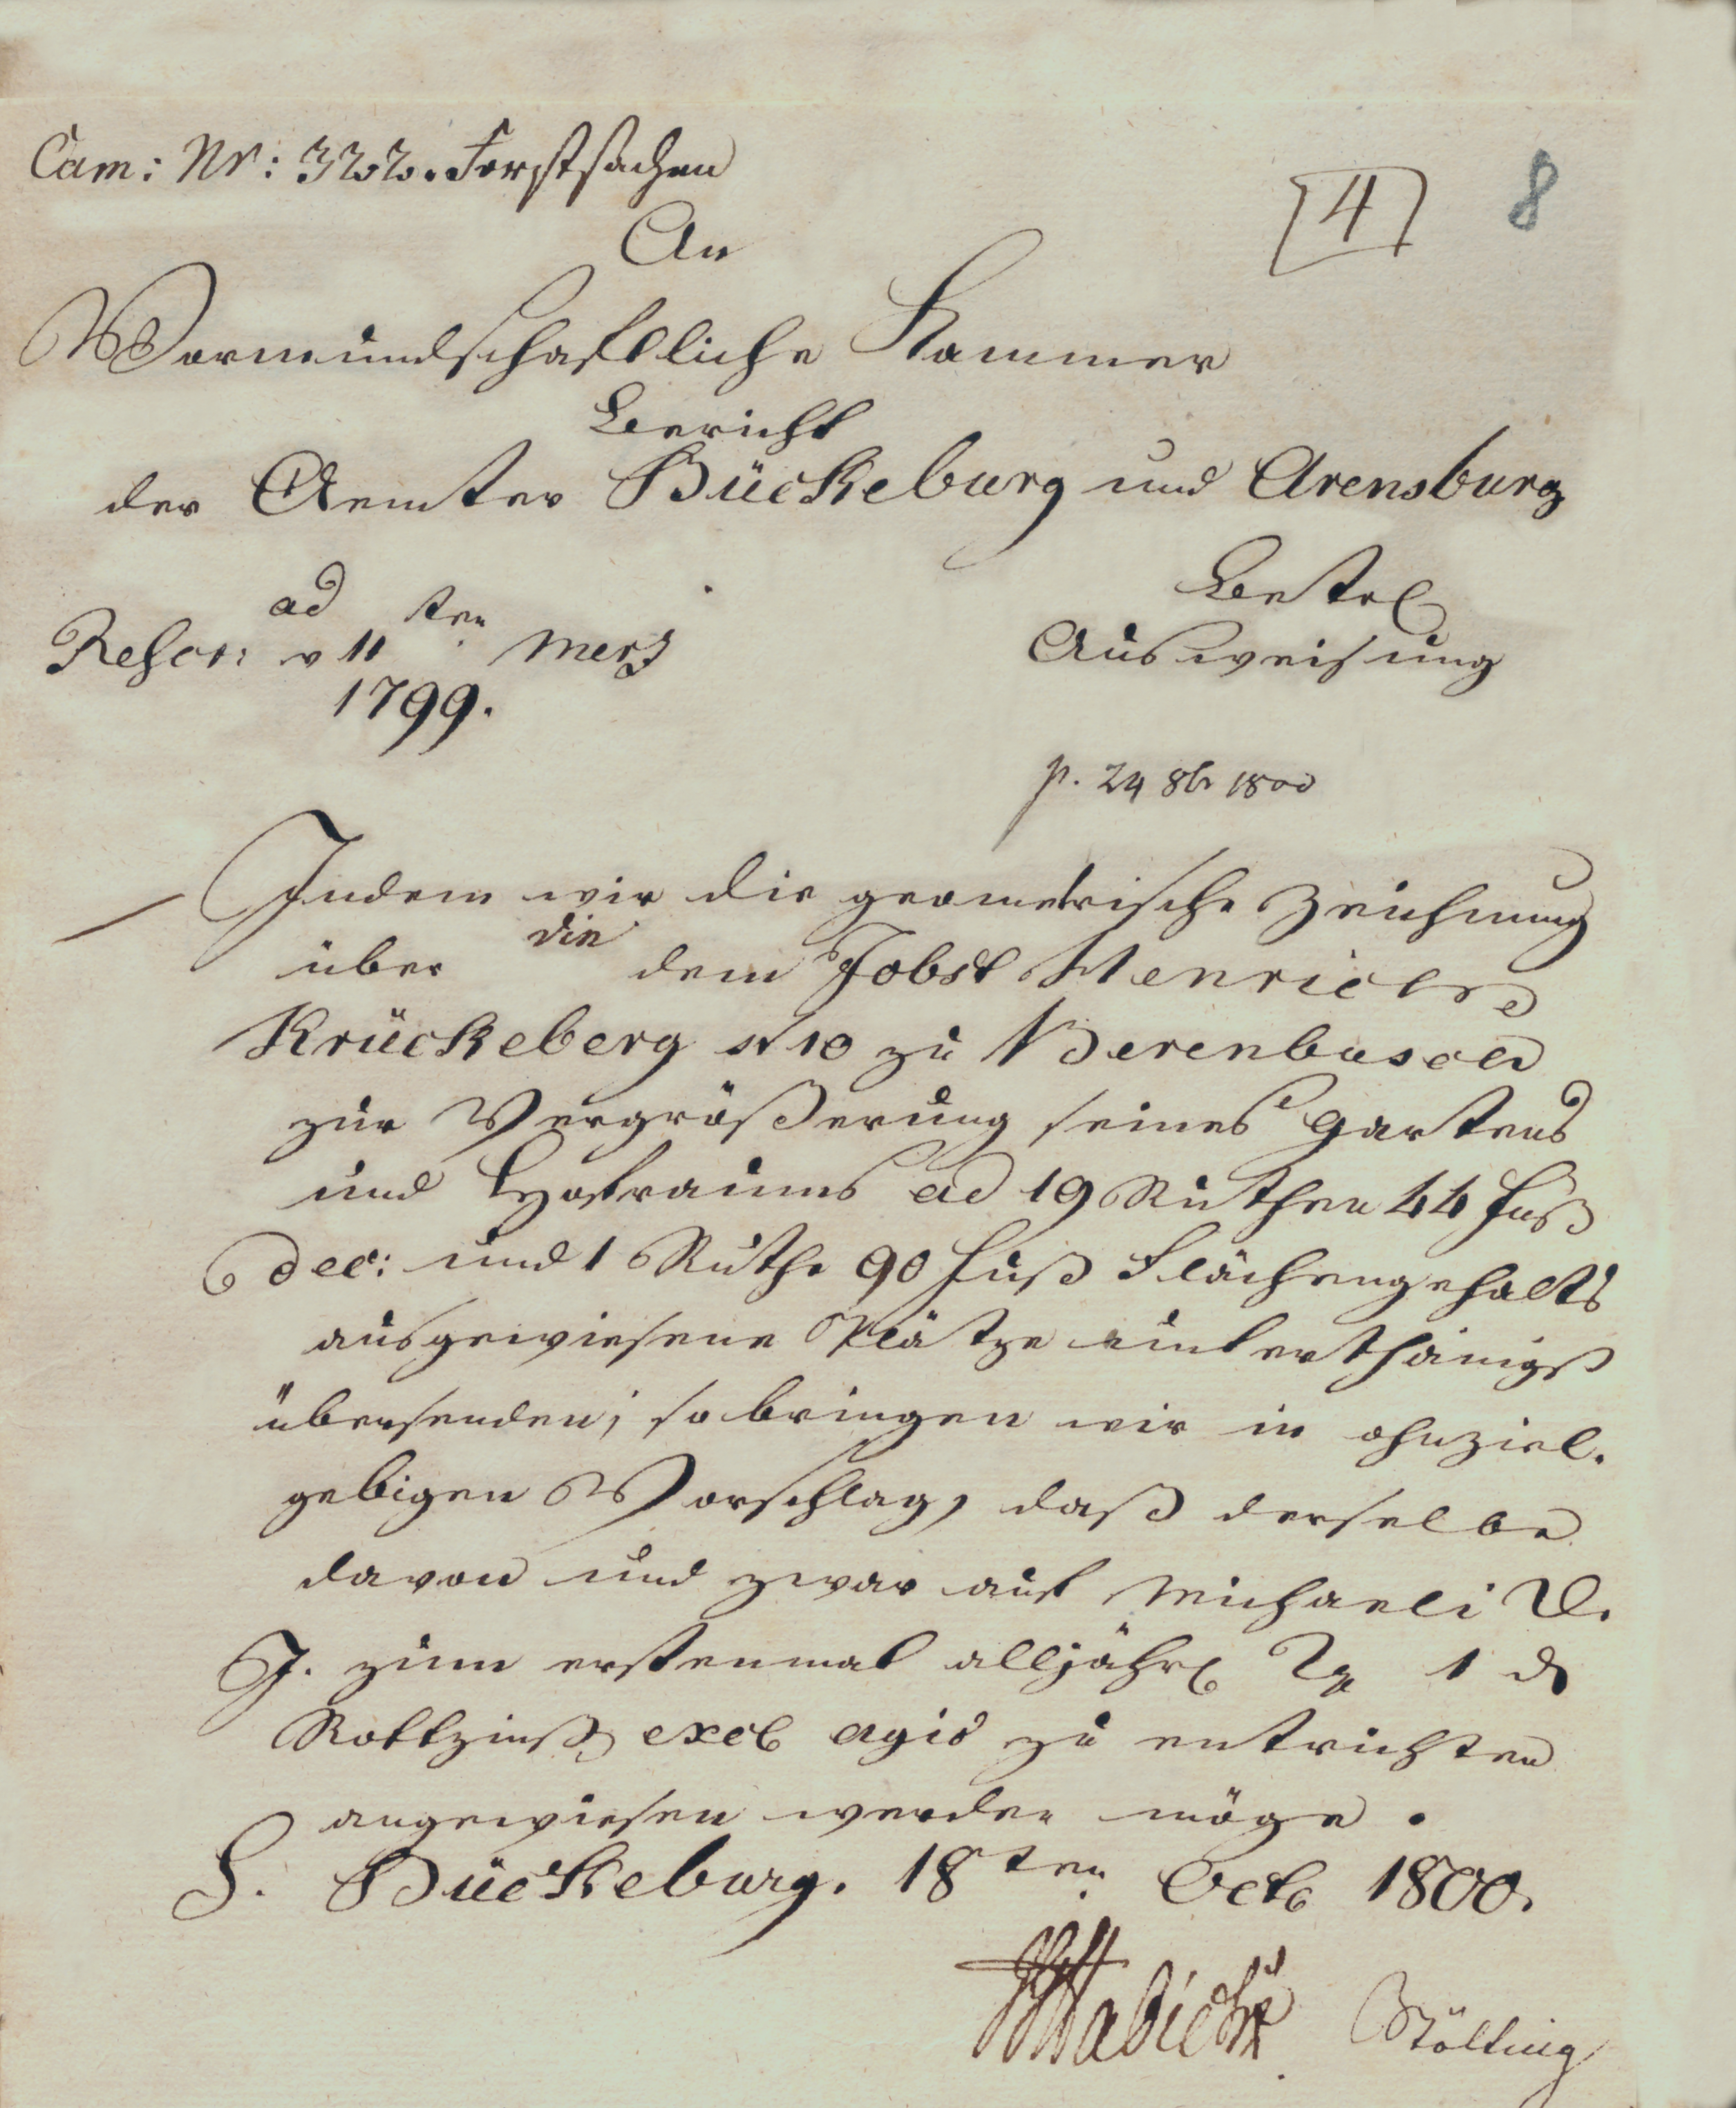 Cam: Nr: 322. Forstsachen
[4] 8
An
Vormundschaftliche Kammer
Bericht
der Aemter Bückeburg und Arensburg
ad
Rescr: v 11ten Merz
1799.
Betrl
Ausweisung
p. 24 8br 1800
Indem wir die geometrische Zeichnung
über die dem Jobst Henrich
Krückeberg N 10 zu Berenbusch
zur Vergrößerung seines Gartens
und Hofraums ad 19 Ruthen 44 Fuß
dec: und 1 Ruthe 90 Fuß Flächengehalts
ausgewiesene Plätze unterthänigst
übersenden; so bringen wir in ohnziel-
gebigen Vorschlag, daß derselbe
davon und zwar auf Michaeli d.
J. zum erstenmal alljährl 1
Rottzinß excl agio zu entrichten
angewiesen werden möge.
S. Bückeburg. 18ten Octb 1800.
Habicht Bölting